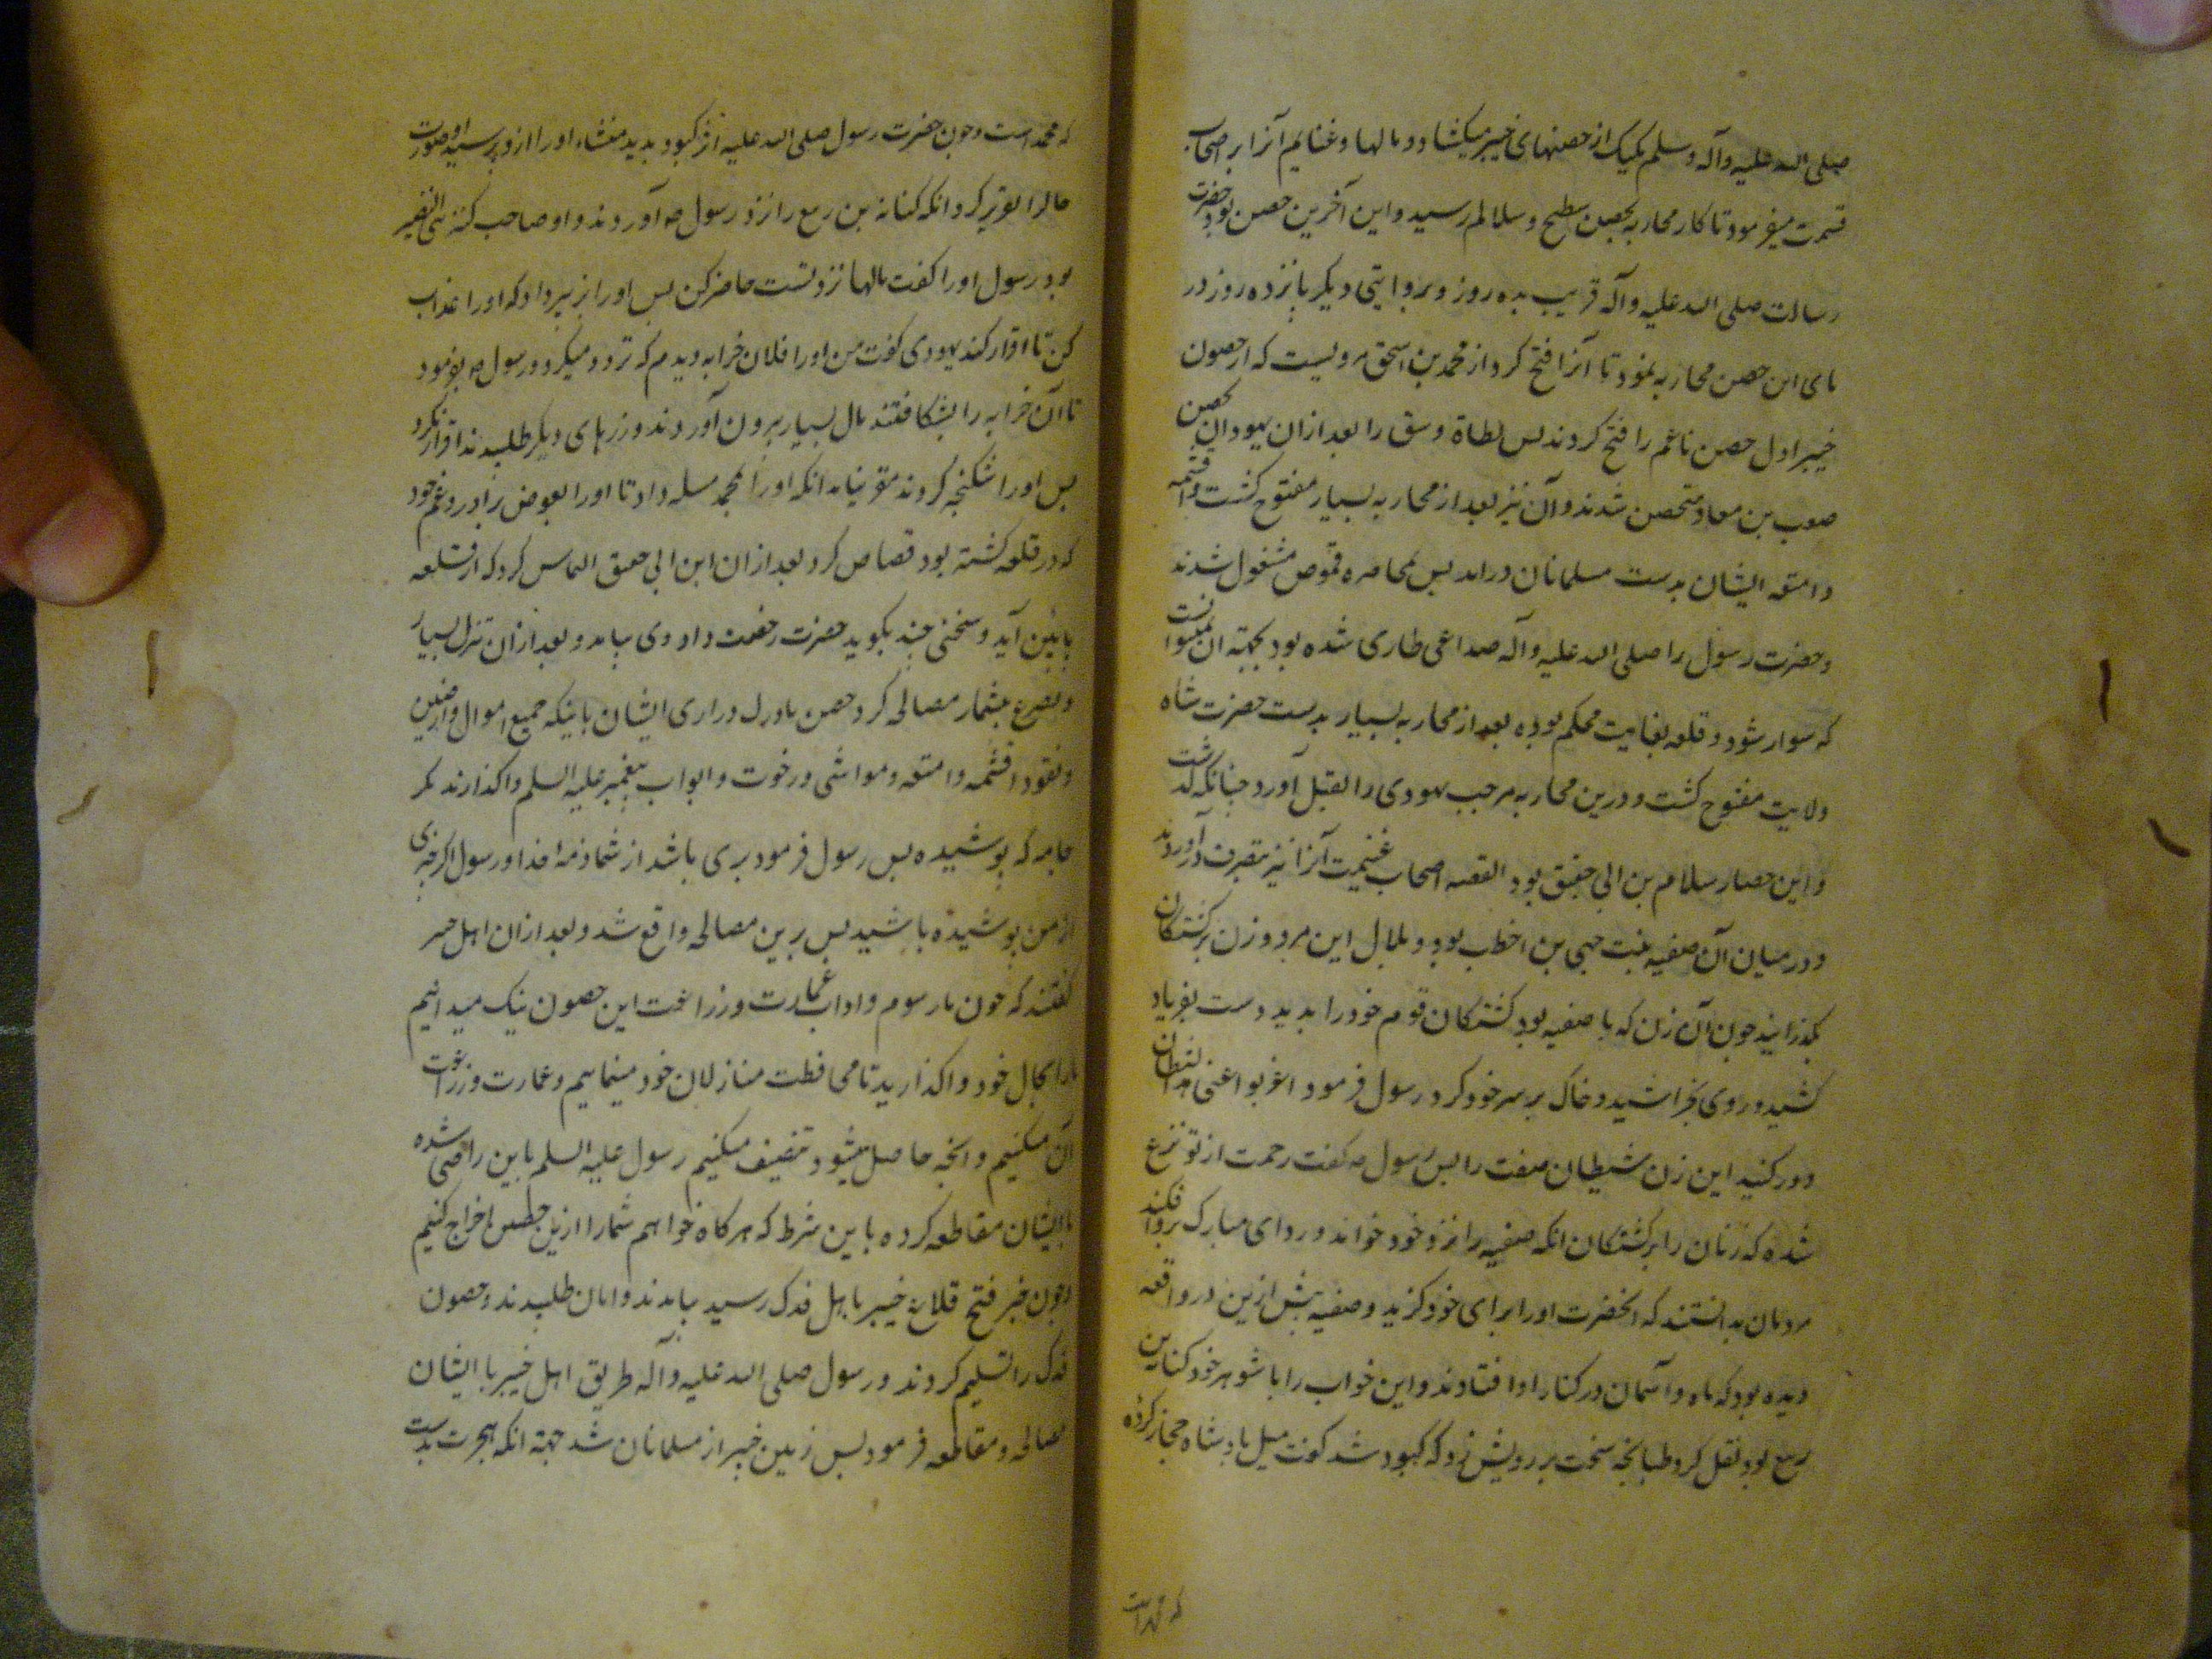 صلی الله علیه وآله وسلم یکیک از حصنهای خیبر میکشاد و مالها و غنایم آنرا بر اصحاب
قسمت میفرمود تا کار محاربه بحصن سطیح و سلالم رسید و این آخرین حصن بود حضرت
رسالت صلی الله علیه وآله قریب بده روز و بروایتی دیکر پانزده روز در
پای این حصن محاربه نمود تا آنرا فتح کرد از محمد بن اسحق مرویست که از حصون
خیبر اول حصن ناعم را فتح کردند پس نطاة و شق را بعد ازان یهودان بحصن
صعب بن معاذ متحصن شدند و آن نیز بعد از محاربه بسیار مفتوح کشت و اقمشه
و امتعه ایشان بدست مسلمانان درامد پس بمحاصره قموص مشغول شدند
و حضرت رسول را صلی الله علیه وآله صداعی طاری شده بود بجهته ان نمیتوانست
که سوار شود و قلعه بغایت محکم بوده بعد از محاربه بسیار بدست حضرت شاه
ولایت مفتوح کشت و درین محاربه مرحب یهودی را بقتل آورد چنانکه کذشت
و این حصار سلام بن ابی حقیق بود القصه اصحاب غنیمت آنرا نیز بتصرف درآوردند
و در میان آن صفیه بنت حیی بن اخطب بود و بلال این مرد و زن بر کشتکان
بکذرانید چون آن زن که با صفیه بود کشتکان قوم خود را بدید دست بفریاد
کشید و روی بخراشید و خاک بر سر خود کرد رسول فرمود اغربوا عنی هذا الشیطان
دور کنید این زن شیطان صفت را پس رسول ص کفت رحمت از تو نزع
شده که زنان را بر کشتکان انکه صفیه را نزد خود خواند و ردای مبارک بر وا فکند
مردمان بدانستند که انحضرت اورا برای خود کزید و صفیه پیش ازین در واقعه
دیده بود که ماه و آسمان در کنار او افتادند و این خواب را با شوهر خود کنانه بن
ربیع بود نقل کرد طبانچه سخت بر رویش زد که کبود شد کفت میل پادشاه حجاز کرده
که محمد است
که محمد است و چون حضرت رسول صلی الله علیه اثر کبود بدید منشاء اورا ازو پرسید او صورت
حالرا تقریر کرد انکه کنانه بن ربیع را نزد رسول ص آوردند و او صاحب کنز بنی النضیر
بود رسول اورا کفت مالها نزد تست حاضر کن پس اورا بزبیر داد که اورا عذاب
کن تا اقرار کند یهودی کفت من اورا فلان خرابه دیدم که تردد میکرد رسول ص بفرمود
تا آن خرابه را بشکافتند مال بسیار برون آوردند و زرهای دیکر طلبیدند اقرار نکرد
پس اورا شکنجه کردند مقر نیامد انکه اورا بمحمد مسلمه داد تا اورا بعوض برادر و عم خود
که در قلعه کشته بود قصاص کرد بعد ازان ابن ابی حقیق التماس کرد که از قلعه
بایین آید و سخنی چند بکوید حضرت رخصت داد وی بیامد و بعد ازان تنزل بسیار
و تضرع بیشمار مصالحه کرد حصن ذراری ایشان باینکه جمیع اموال و اراضین
و نقود و اقمشه و امتعه و مواشی و رخوت و ابواب پیغمبر علیه السلم واکذارند مکر
جامه که پوشیده پس رسول فرمود بری باشد از شما ذمه خدا و رسول اکر چیزی
از من پوشیده باشید پس برین مصالحه واقع شد و بعد ازان اهل خیبر
کفتند که چون ما رسوم و اداب عمارت و زراعت این حصون نیک میدانیم
مارا بحال خود واکذارید تا محافظت منازل ان خود مینماییم و عمارت و زراعت
آن میکنیم و انچه حاصل میشود تنصیف میکنیم رسول علیه السلم باین راضی شده
با ایشان مقاطعه کرده باین شرط که هر کاه خواهم شمارا ازین اخراج کنیم
و چون خبر فتح قلاع خیبر باهل فدک رسید بیامدند و امان طلبیدند و حصون
فدک را تسلیم کردند و رسول صلی الله علیه وآله طریق اهل خیبر با ایشان
مصالحه و مقاطعه فرمود پس زمین خیبر از مسلمانان شد جهته انکه بهجرت بدست